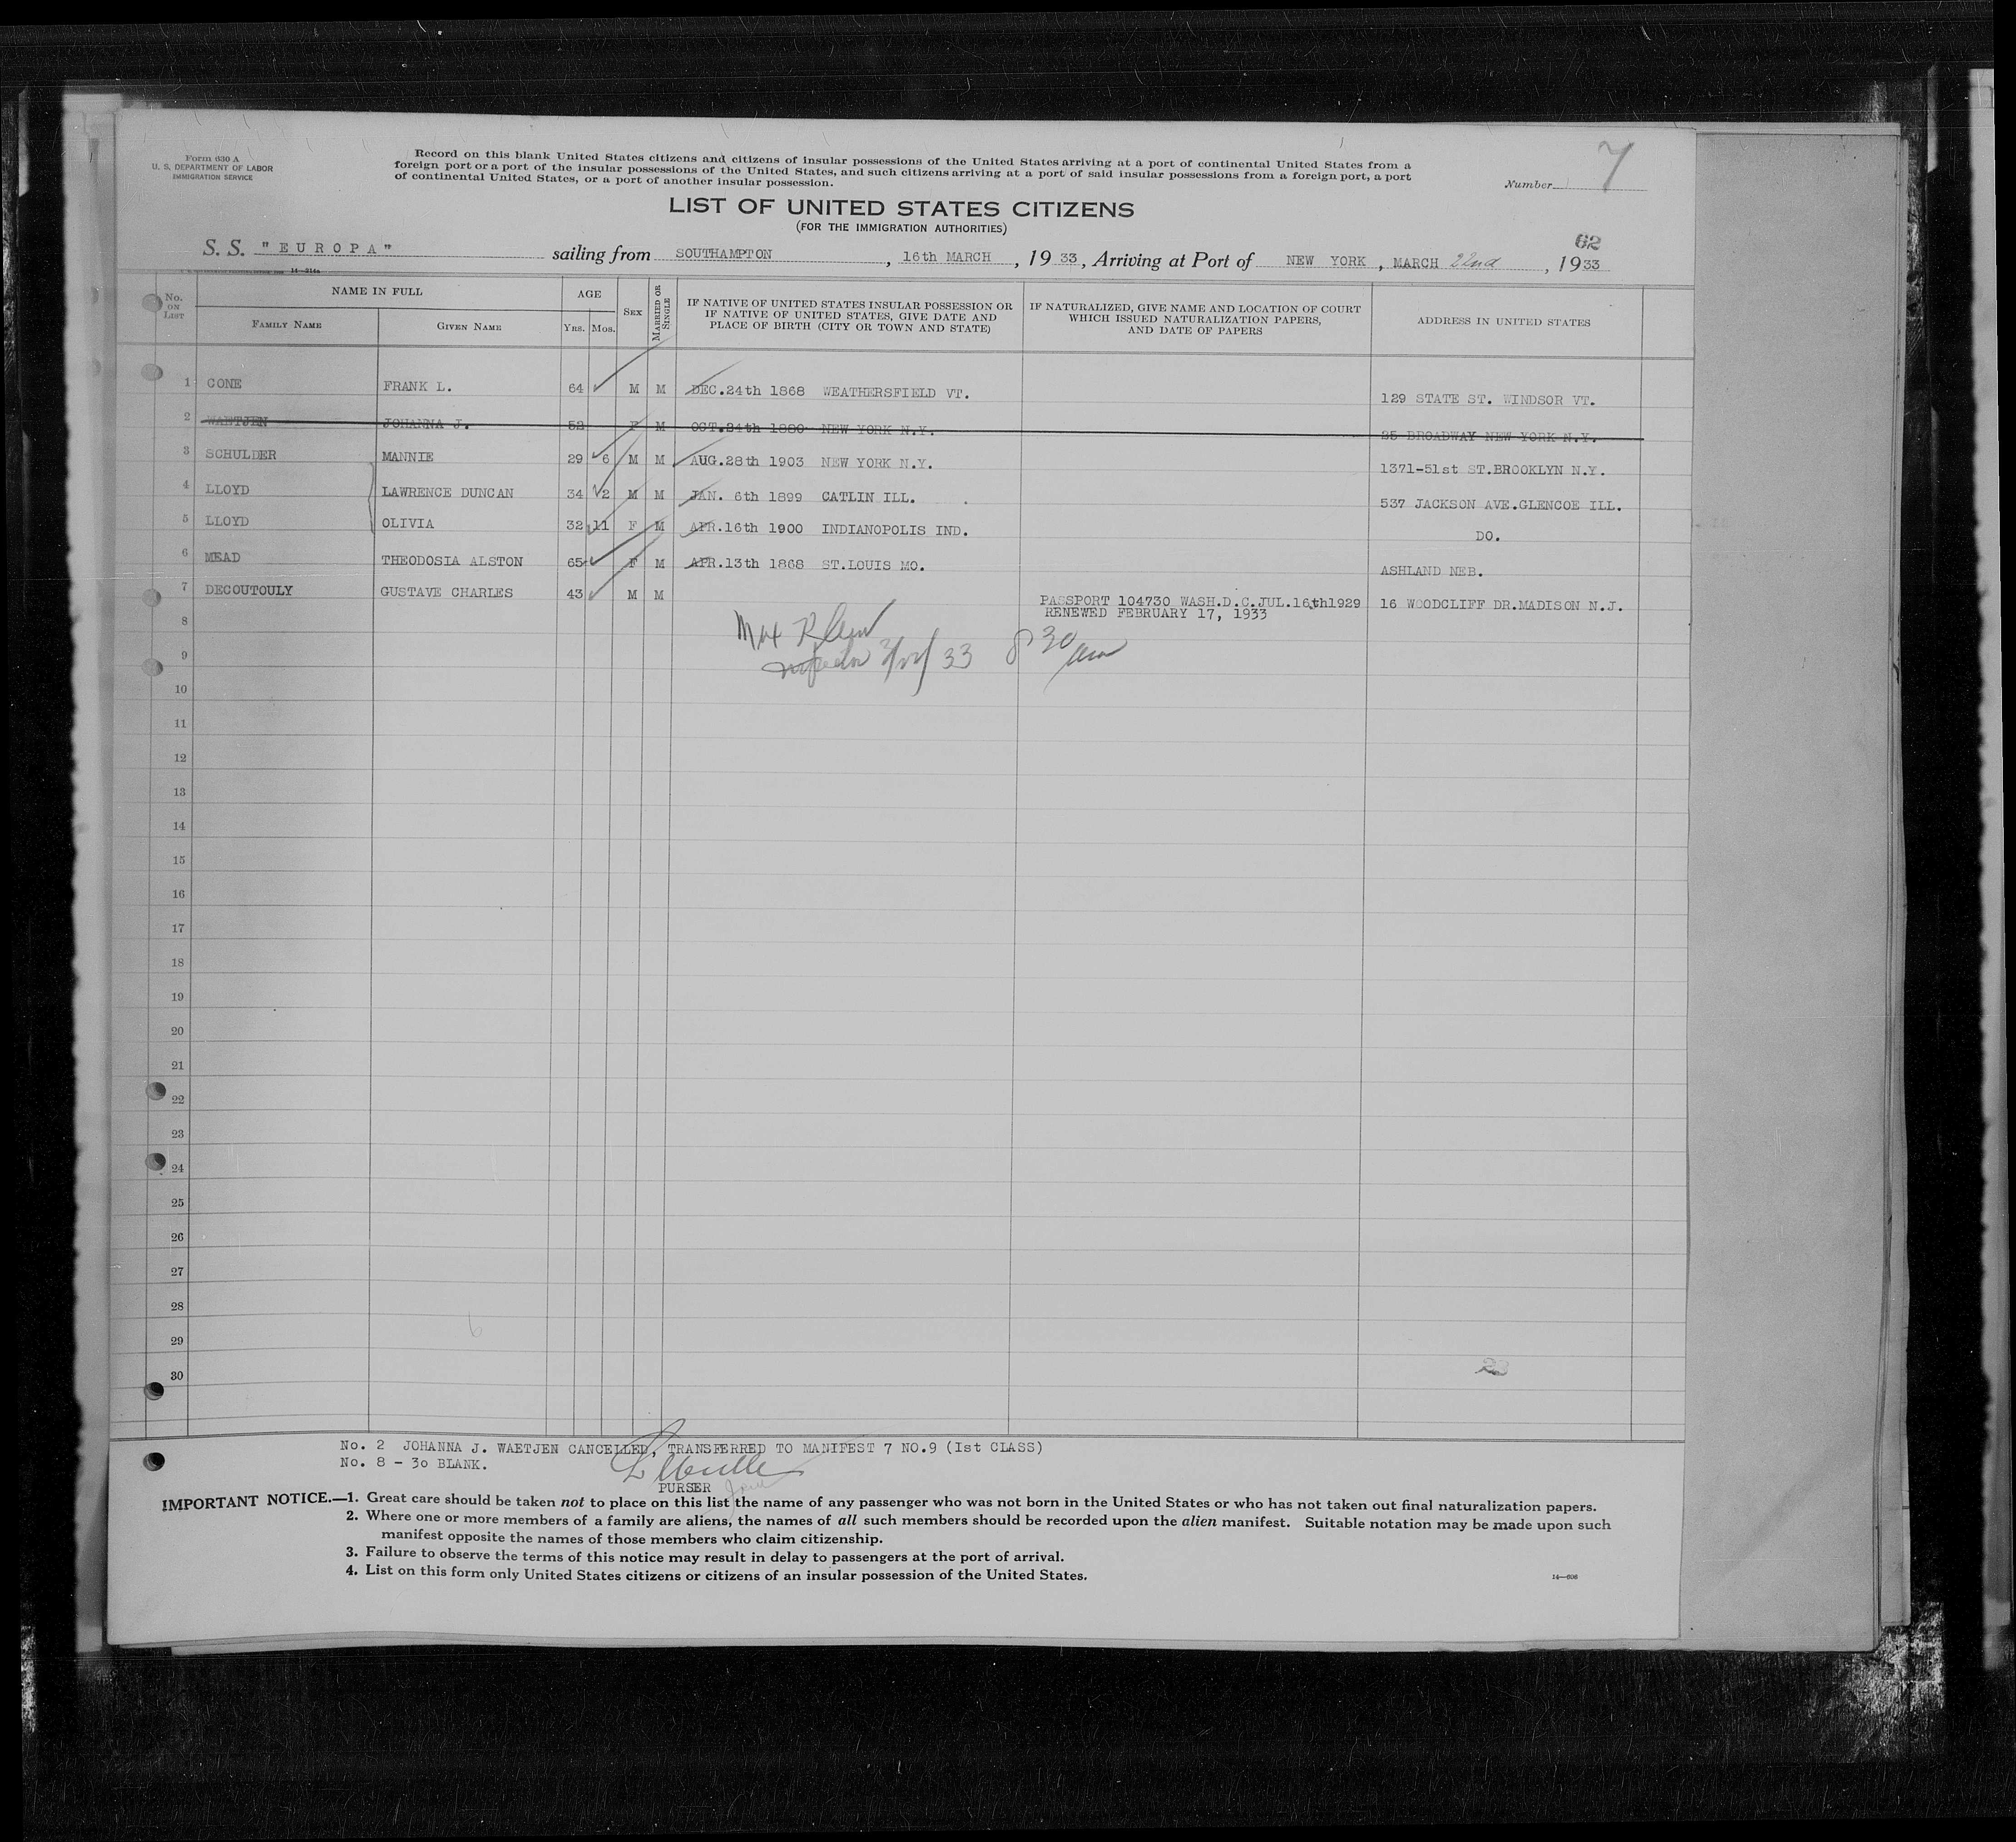 Form 630 A
U. S. DEPARTMENT OF LABOR
IMMIGRATION SERVICE
Record on this blank United States citizens and citizens of insular possessions of the United States arriving at a port of continental United States from a
foreign port or a port of the insular possessions of the United States, and such citizens arriving at a port of said insular possessions from a foreign port, a port
of continental United States, or a port of another insular possession.
Number 7
LIST OF UNITED STATES CITIZENS
(FOR THE IMMIGRATION AUTHORITIES)
62
S. S. "EUROPA" sailing from SOUTHAMPTON, 16th MARCH, 1933, Arriving at Port of NEW YORK, MARCH 22nd, 1933
14-214a
No. ON LIST
NAME IN FULL
FAMILY NAME GIVEN NAME
AGE
YRS. MOS.
SEX
MARRIED OR SINGLE
IF NATIVE OF UNITED STATES INSULAR POSSESSION OR
IF NATIVE OF UNITED STATES, GIVE DATE AND
PLACE OF BIRTH (CITY OR TOWN AND STATE)
IF NATURALIZED, GIVE NAME AND LOCATION OF COURT
WHICH ISSUED NATURALIZATION PAPERS,
AND DATE OF PAPERS
ADDRESS IN UNITED STATES
1 CONE FRANK L. 64 M M DEC.24th 1868 WEATHERSFIELD VT. 129 STATE ST. WINDSOR VT.
2 WAETJEN JOHANNA J. 52 F M OCT.24th 1880 NEW YORK N.Y. 25 BROADWAY NEW YORK N.Y.
3 SCHULDER MANNIE 29 6 M M AUG.28th 1903 NEW YORK N.Y. 1371-51st ST.BROOKLYN N.Y.
4 LLOYD LAWRENCE DUNCAN 34 2 M M JAN. 6th 1899 CATLIN ILL. 537 JACKSON AVE.GLENCOE ILL.
5 LLOYD OLIVIA 32 11 F M APR.16th 1900 INDIANOPOLIS IND. DO.
6 MEAD THEODOSIA ALSTON 65 F M APR.13th 1868 ST.LOUIS MO. ASHLAND NEB.
7 DECOUTOULY GUSTAVE CHARLES 43 M M PASSPORT 104730 WASH.D.C.JUL.16th1929 16 WOODCLIFF DR.MADISON N.J.
RENEWED FEBRUARY 17, 1933
8
Max Klein
9
Inspector 3/22/33 8 30 am
10
11
12
13
14
15
16
17
18
19
20
21
22
23
24
25
26
27
28
29
6
30
23
No. 2 JOHANNA J. WAETJEN CANCELLED, TRANSFERRED TO MANIFEST 7 NO.9 (Ist CLASS)
No. 8 - 30 BLANK.
PURSER
IMPORTANT NOTICE.—1. Great care should be taken not to place on this list the name of any passenger who was not born in the United States or who has not taken out final naturalization papers.
2. Where one or more members of a family are aliens, the names of all such members should be recorded upon the alien manifest. Suitable notation may be made upon such
manifest opposite the names of those members who claim citizenship.
3. Failure to observe the terms of this notice may result in delay to passengers at the port of arrival.
4. List on this form only United States citizens or citizens of an insular possession of the United States.
14—606